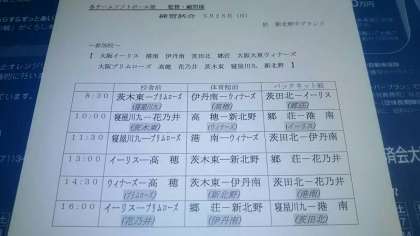 各チームソフトボール部 監督・顧問様
練習試合 5月28日 (日)
於 新北野中グランド
~参加校~
【 大阪イーリス 港南 伊丹南 茨田北 郷荘 大阪大東ウィナーズ
大阪プリムローズ 高穂 花乃井 茨木東 寝屋川九 新北野 】
校舎前 体育館前 バックネット前
8:30 茨木東ープリムローズ 伊丹南ーウィナーズ 茨田北ーイーリス
(寝屋川九) (高穂) (郷荘)
10:00 寝屋川九ー花乃井 高穂ー新北野 郷荘ー港南
(茨木東) (ウィナーズ) (イーリス)
11:30 寝屋川九ープリムローズ 港南ーウィナーズ 茨田北ー伊丹南
13:00 イーリスー高穂 茨木東ー新北野 郷荘ー花乃井
14:30 ウィナーズー高穂 茨木東ー伊丹南 茨田北ー花乃井
(プリムローズ) (新北野) (港南)
16:00 イーリスープリムローズ 郷荘ー新北野 寝屋川九ー港南
(花乃井) (伊丹南) (茨田北)